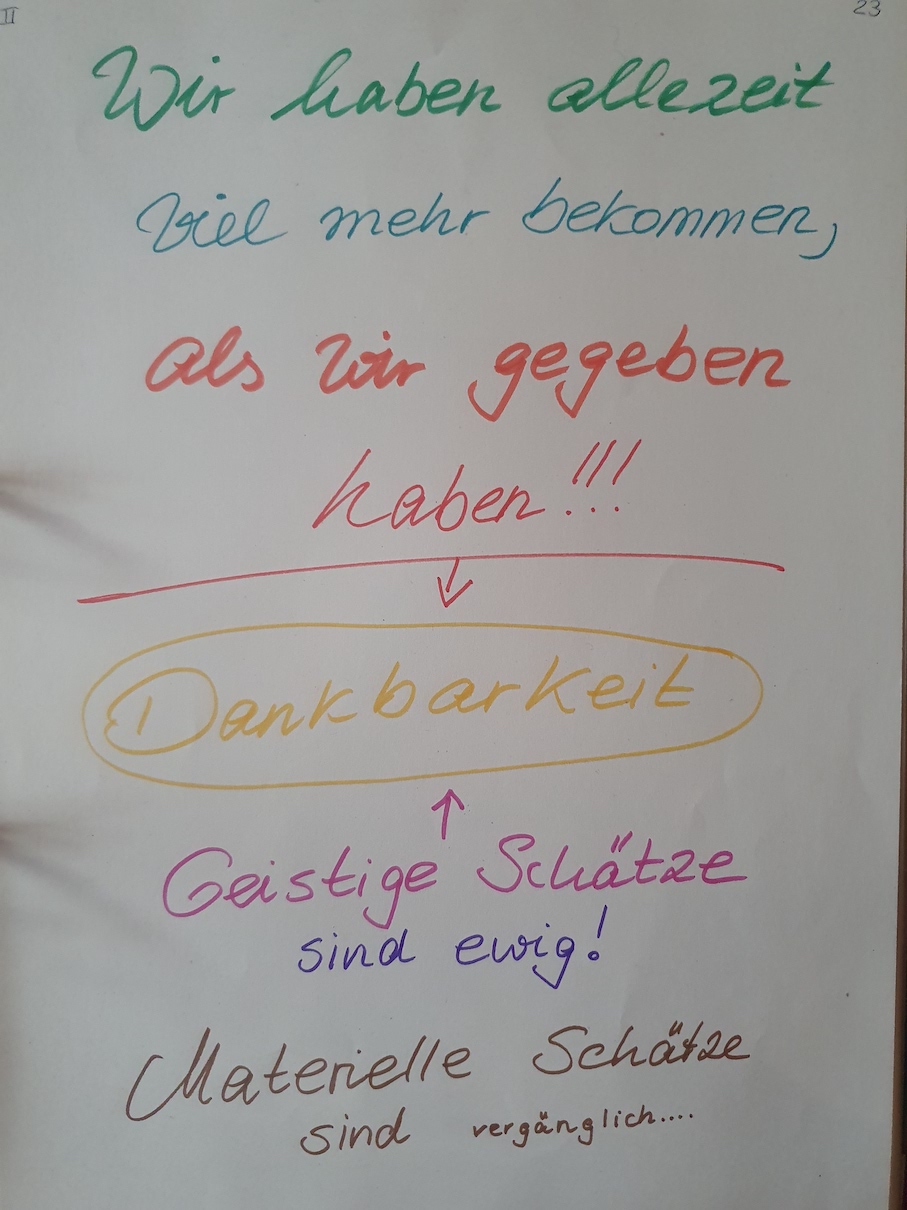 II 23
Wir haben allezeit
viel mehr bekommen,
als wir gegeben
haben!!!
Dankbarkeit
Geistige Schätze
sind ewig!
Materielle Schätze
sind vergänglich....